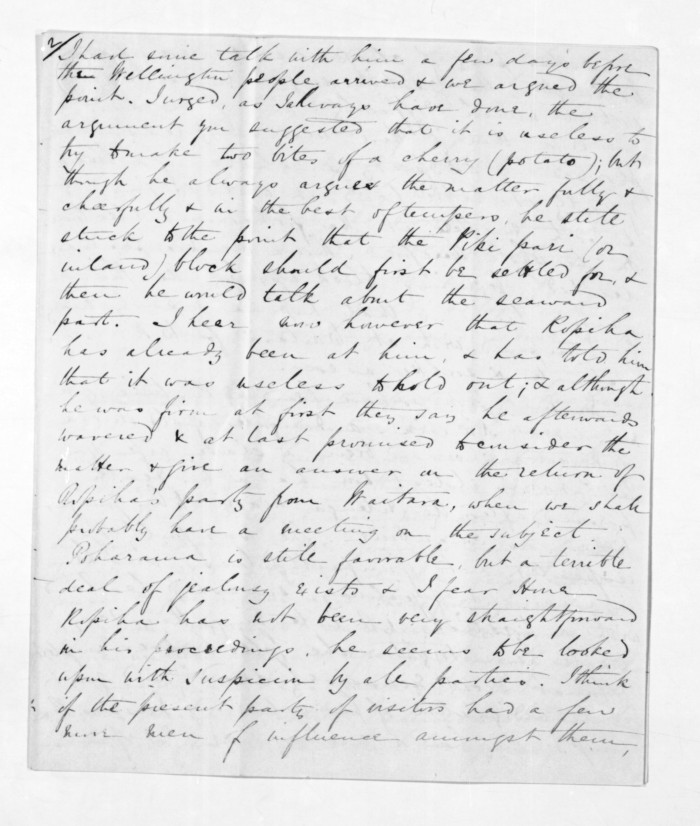 2/ I had some talk with him a few days before
the Wellington people arrived & we argued the
point. I urged, as I always have done, the
argument you suggested that it is useless to
try to make two bites of a cherry (potato); but
though he always argues the matter fully &
cheerfully & in the best of tempers, he still
stuck to the point that the Piki pari (or
inland) block should first be settled for, &
then he would talk about the seaward
part. I hear now however that Ropiha
has already been at him, & has told him
that it was useless to hold out; & although
he was firm at first they say he afterwards
wavered & at last promised to consider the
matter & give an answer on the return of
Ropiha's party from Waitara, when we shall
probably have a meeting on the subject.
Poharama is still favorable, but a terrible
deal of jealousy exists & I fear Hone
Ropiha has not been very straightforward
in his proceedings, he seems to be looked
upon with suspicion by all parties. I think
if the present party of visitors had a few
more men of influence amongst them,